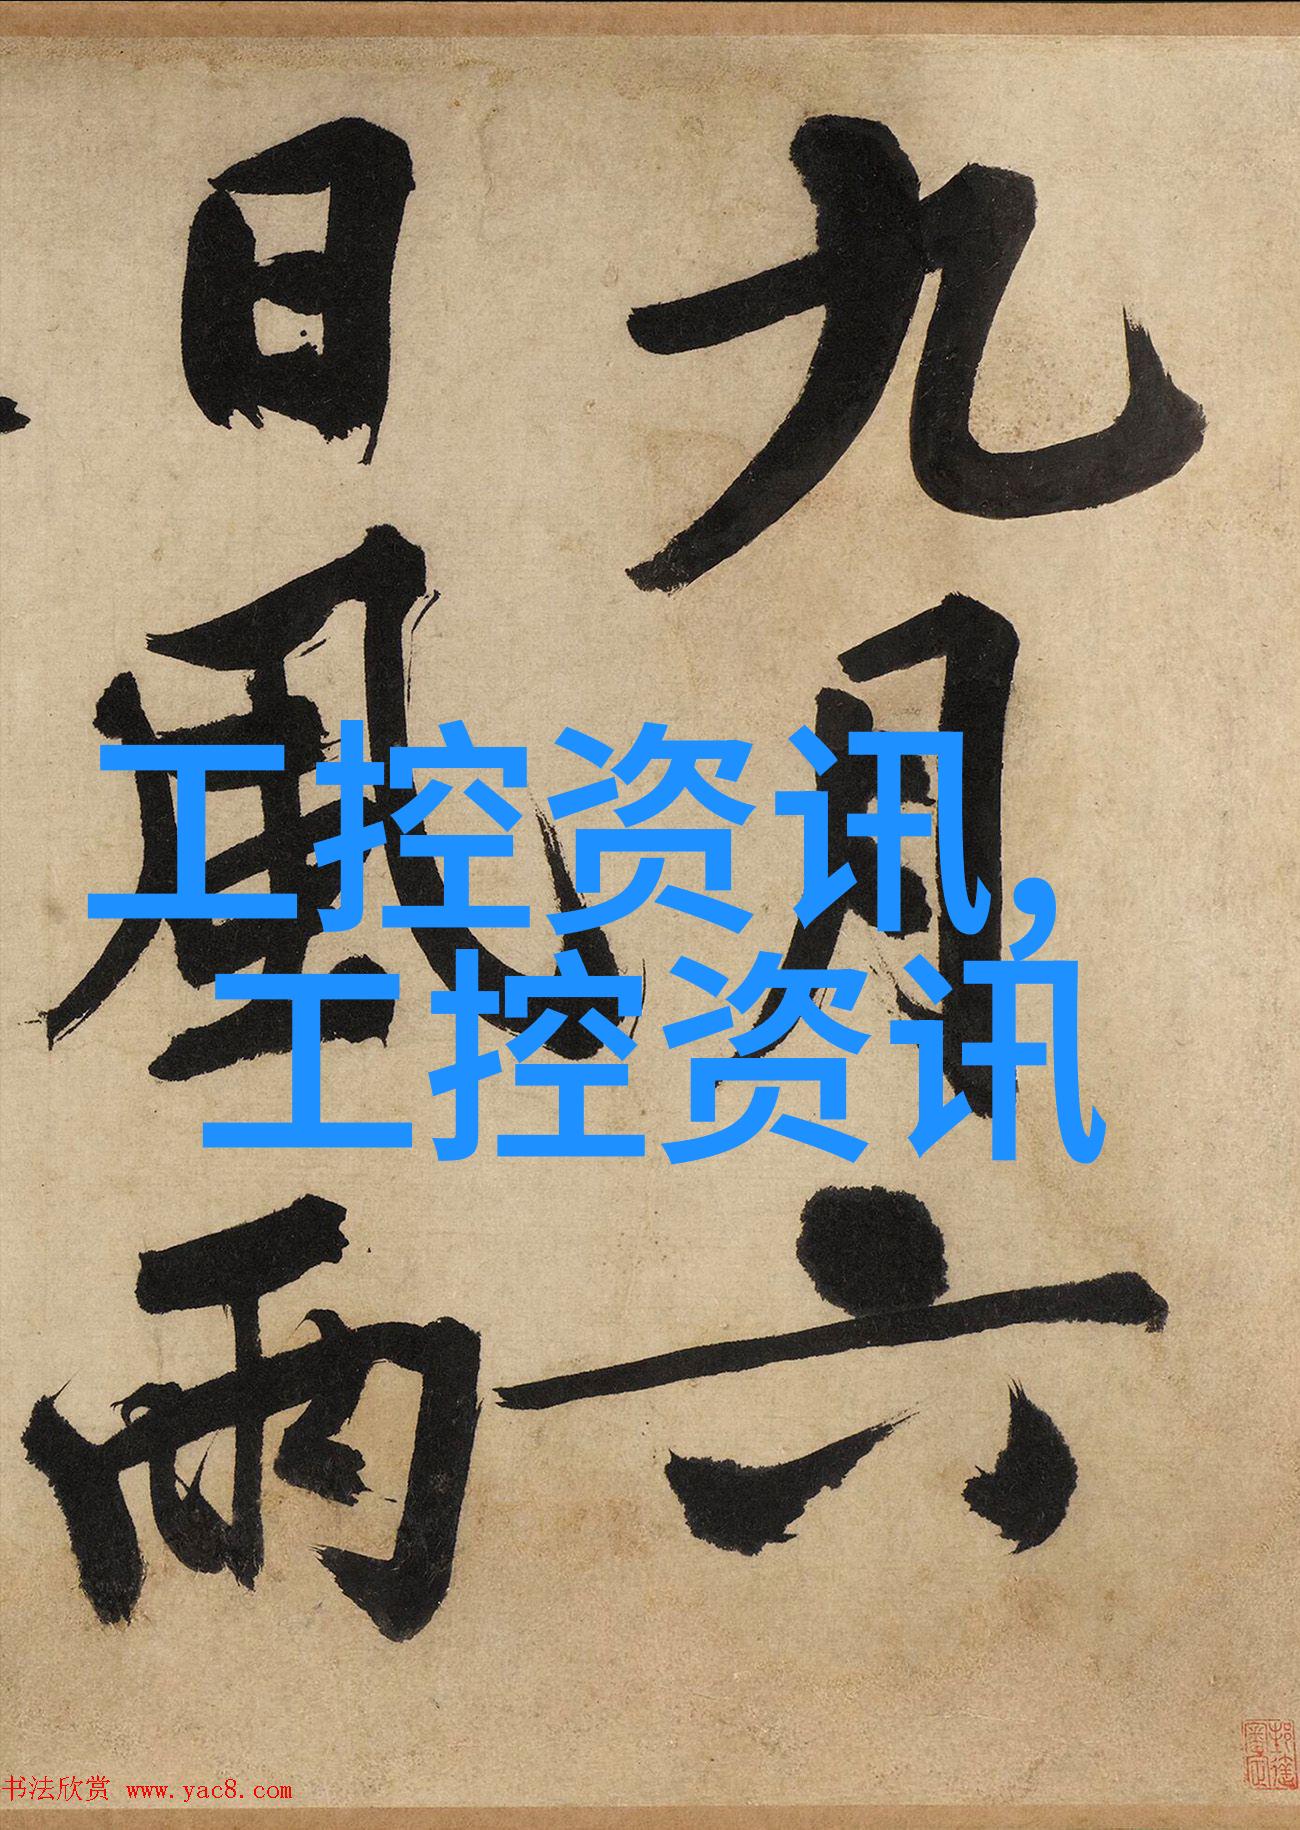 九月六
日風雨
工控资讯,
工控资讯
书法欣赏 www.yac8.com